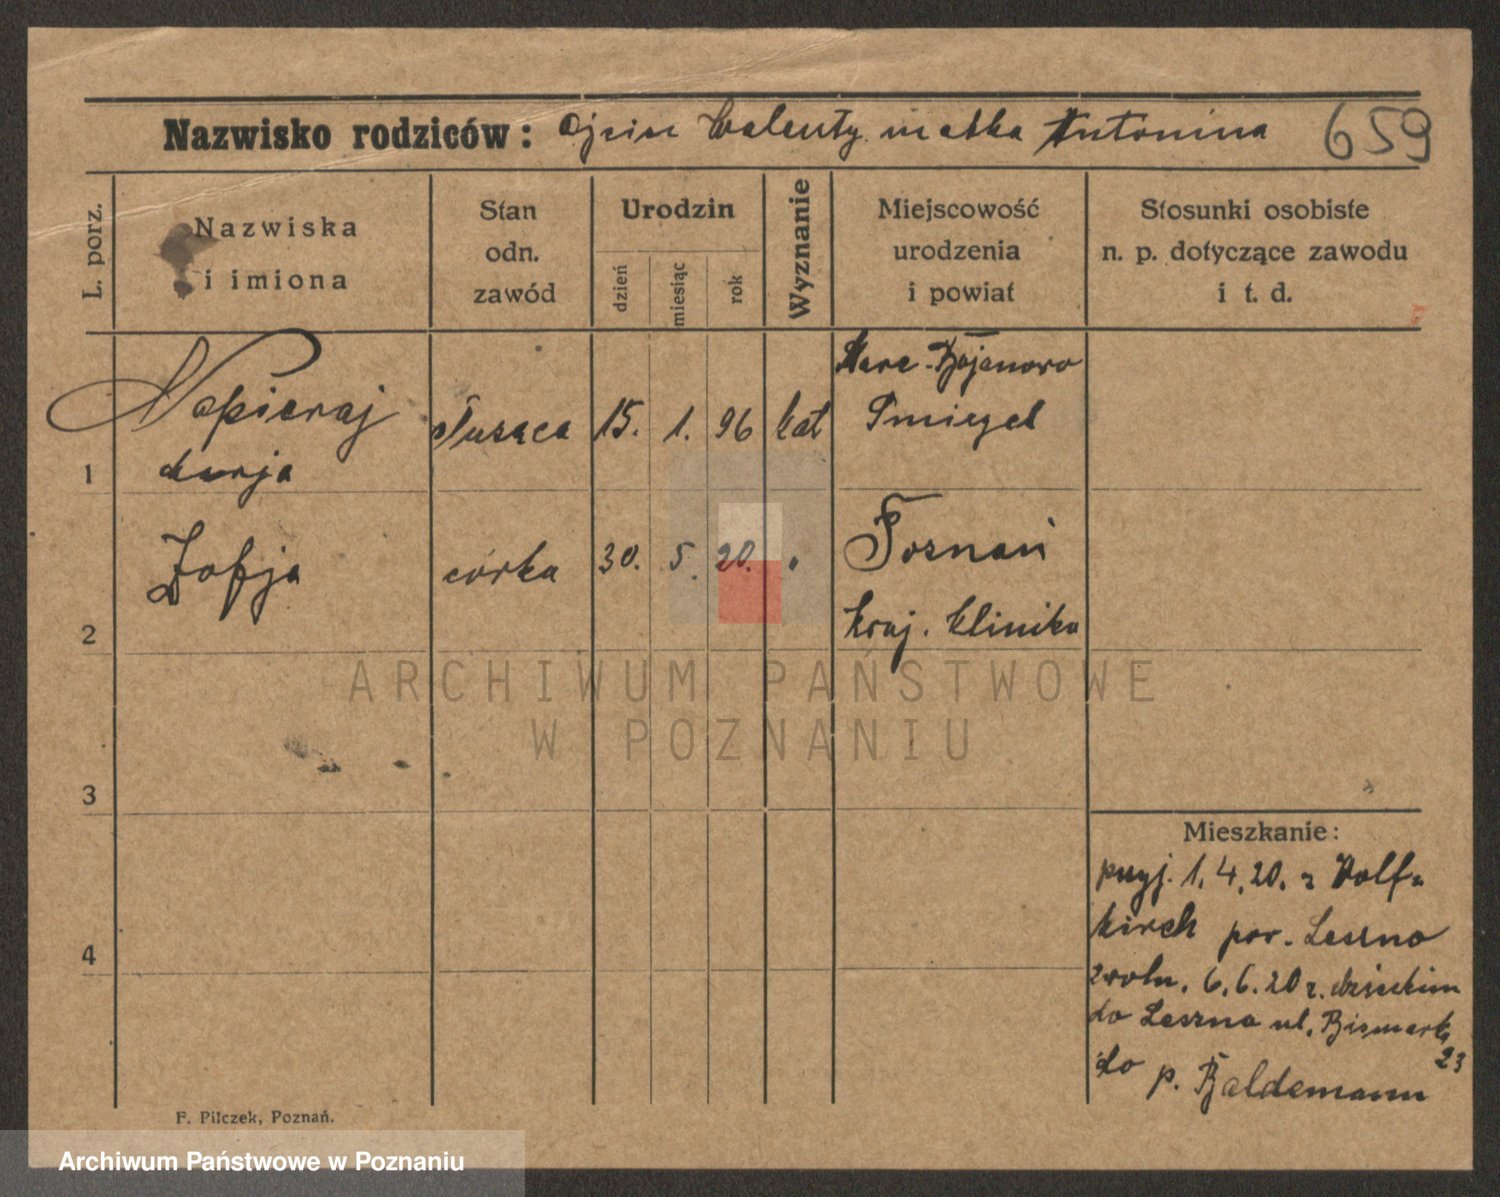 Nazwisko rodziców: Ojciec Walenty matka Antonina 659
L. porz.
Nazwiska i imiona
Stan odn. zawód
Urodzin
dzień
miesiąc
rok
Wyznanie
Miejscowość urodzenia i powiat
Stosunki osobiste n. p. dotyczące zawodu i t. d.
1
Napieraj
Marja
służąca
15. 1. 96
kat
Stare-Bojanowo
Śmiegel
2
Zofja
córka
30. 5. 20.
"
Poznań
kraj. klinika
3
4
Mieszkanie:
przyj. 1.4.20. z Wolf-
kirch pow. Leszno
zwoln. 6.6.20 z. dzieckiem
do Leszna ul. Bismark
23
do p. Baldemann
F. Pilczek, Poznań.
ARCHIWUM PAŃSTWOWE
W POZNANIU
Archiwum Państwowe w Poznaniu